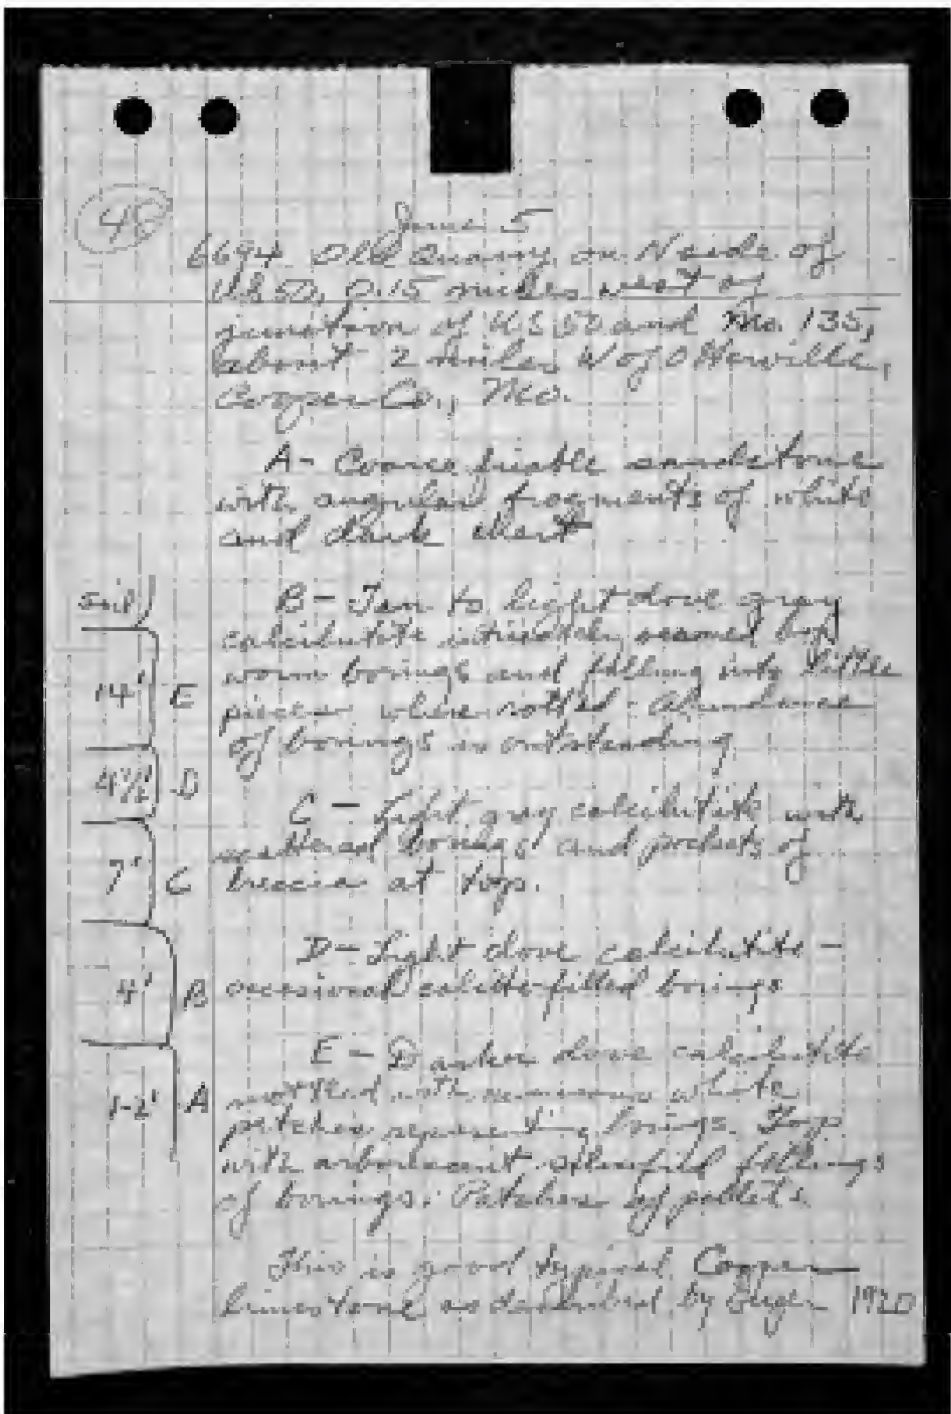 48
June 5
6694 Old Quarry on N side of
U.S. 50, 0.15 miles west of
junction of U.S 50 and Mo. 135,
about 2 miles W of Otterville,
Cooper Co., Mo.
A - Coarse friable sandstone
with angular fragments of white
and dark chert
B - Tan to light dove gray
calcilutite intricately seamed by
worm borings and falling into little
pieces where rotted - Abundance
of borings is outstanding
C - Light gray calcilutite with
scattered borings and pockets of
breccia at top.
D - Light dove calcilutite -
occasional calcite filled borings
E - Darker dove calcilutite
mottled with numerous white
patches representing borings. Top
with arborescent silicified fillings
of borings. Patches of pellets.
This is good typical Cooper
limestone as described by 1920
soil
14' E
4 1/2' D
7' C
4' B
1-2' A